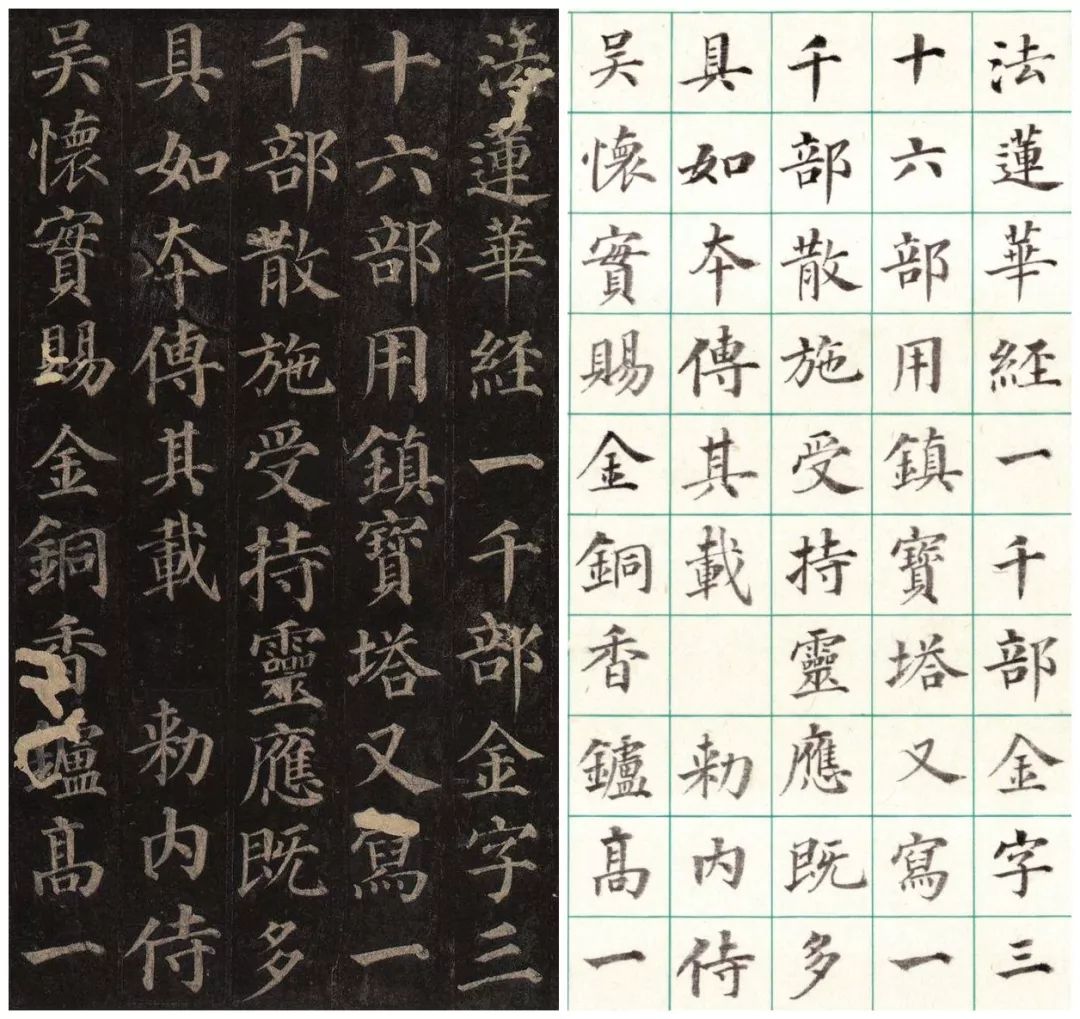 法蓮華経一千部金字三
十六部用鎮寶塔又寫一
千部散施受持靈應既多
具如夲傳其載 勑内侍
吴懷實賜金銅香鑪髙一
法蓮華経一千部金字三
十六部用鎮寶塔又寫一
千部散施受持靈應既多
具如夲傳其載 勑内侍
吴懷實賜金銅香鑪髙一